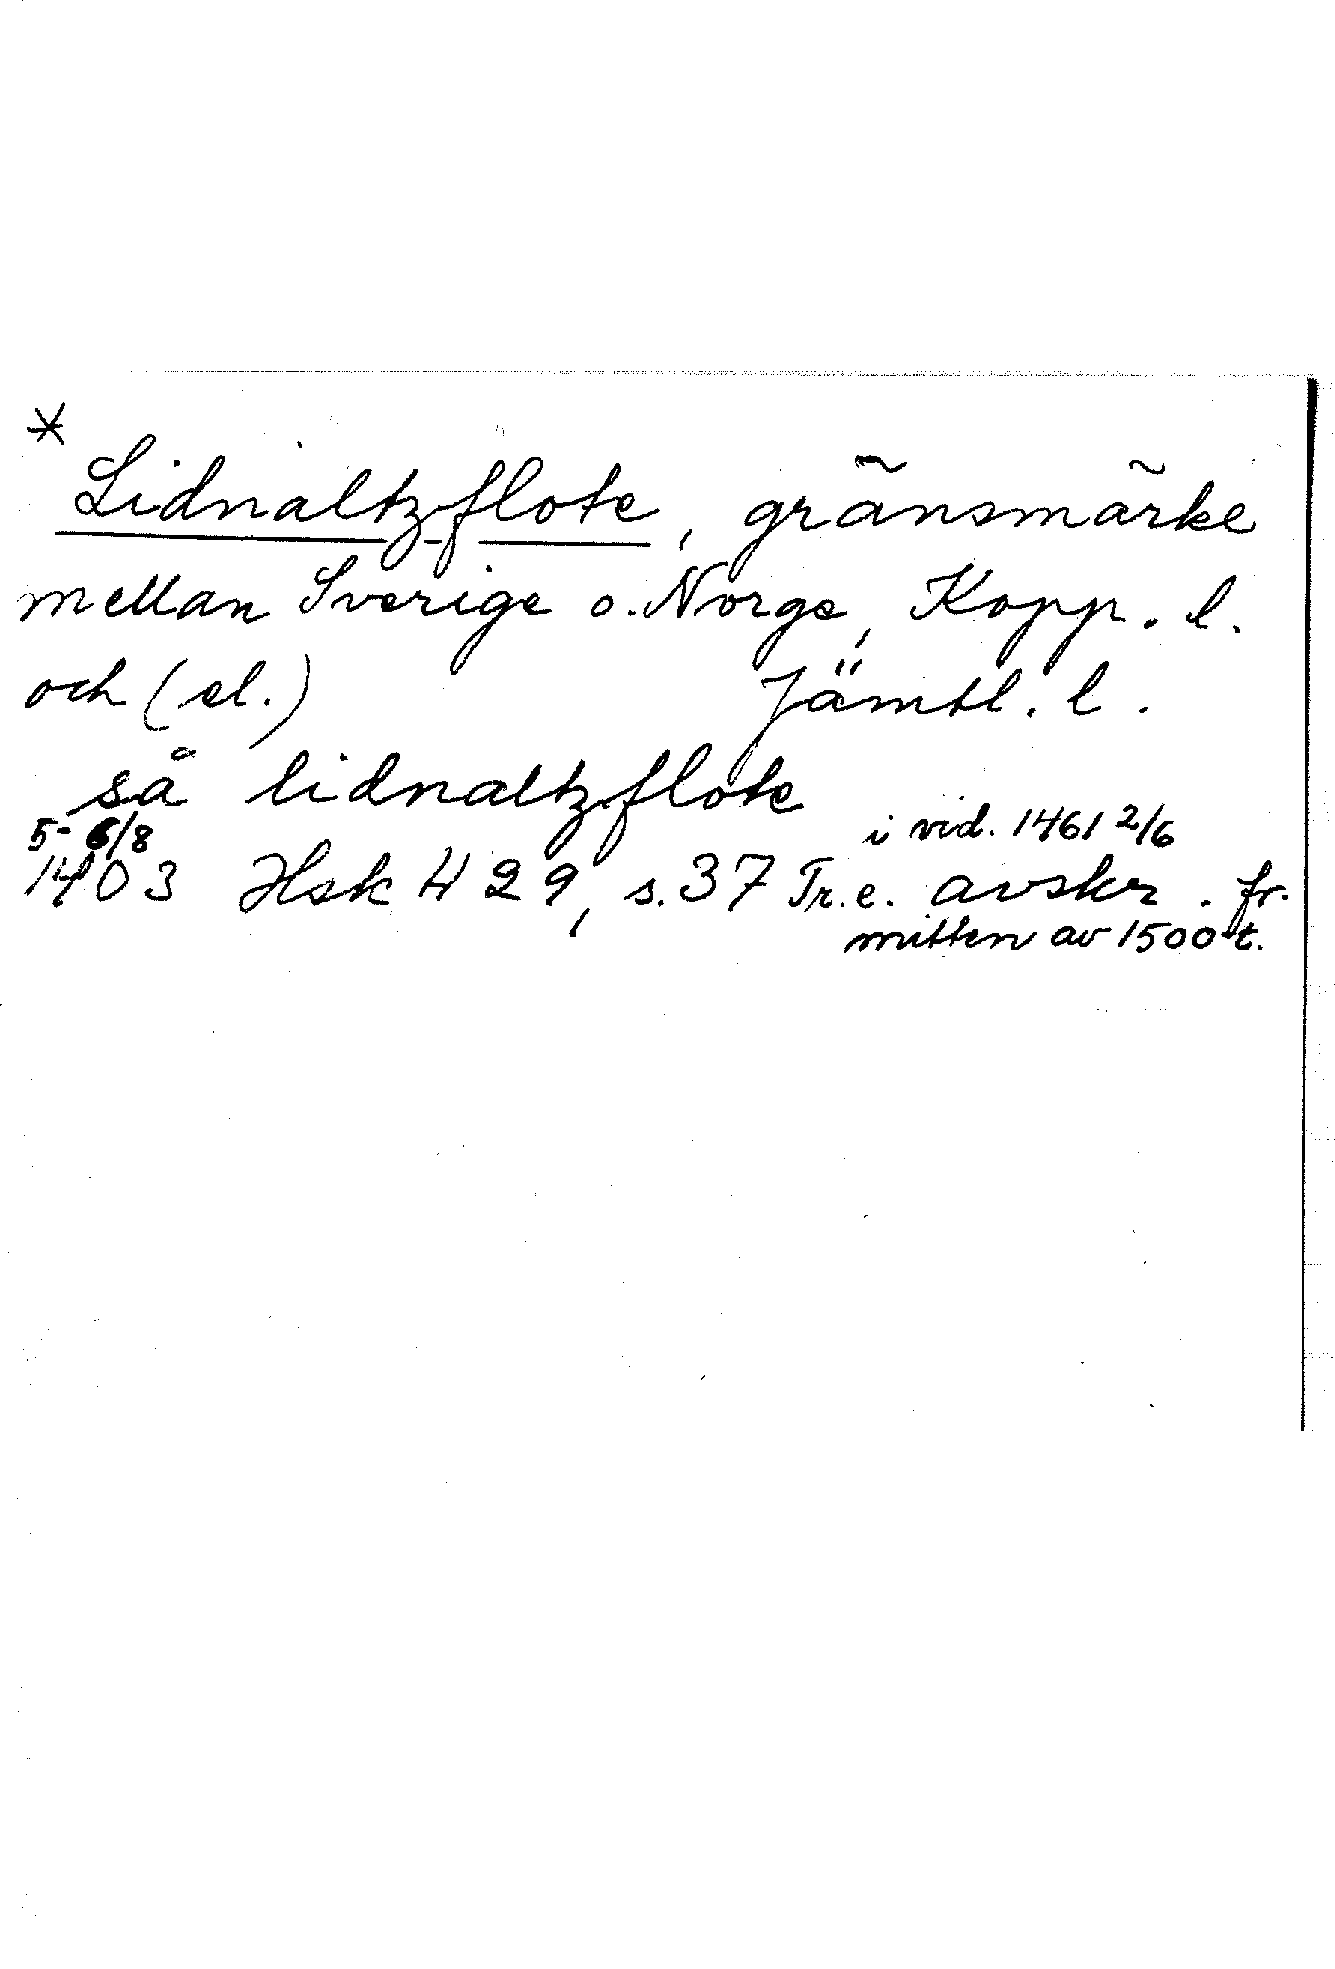 * Lidnaltzflote, gränsmärke
mellan Sverige o. Norge, Kopp. l.
och (el.) Jämtl. l.
så lidnaltzflote
5-6/8 i vid. 1461 2/6
1403 Hsk H 29, s. 37 Tr. e. avskr. fr.
mitten av 1500-t.